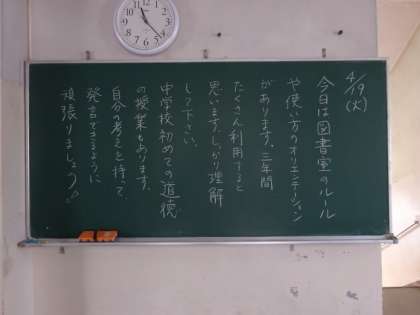 4/19(火)
今日は図書室のルール
や使い方のオリエンテーション
があります。三年間
たくさん利用すると
思います。しっかり理解
して下さい。
中学校初めての道徳
の授業もあります。
自分の考えを持って
発言できるように
頑張りましょう。